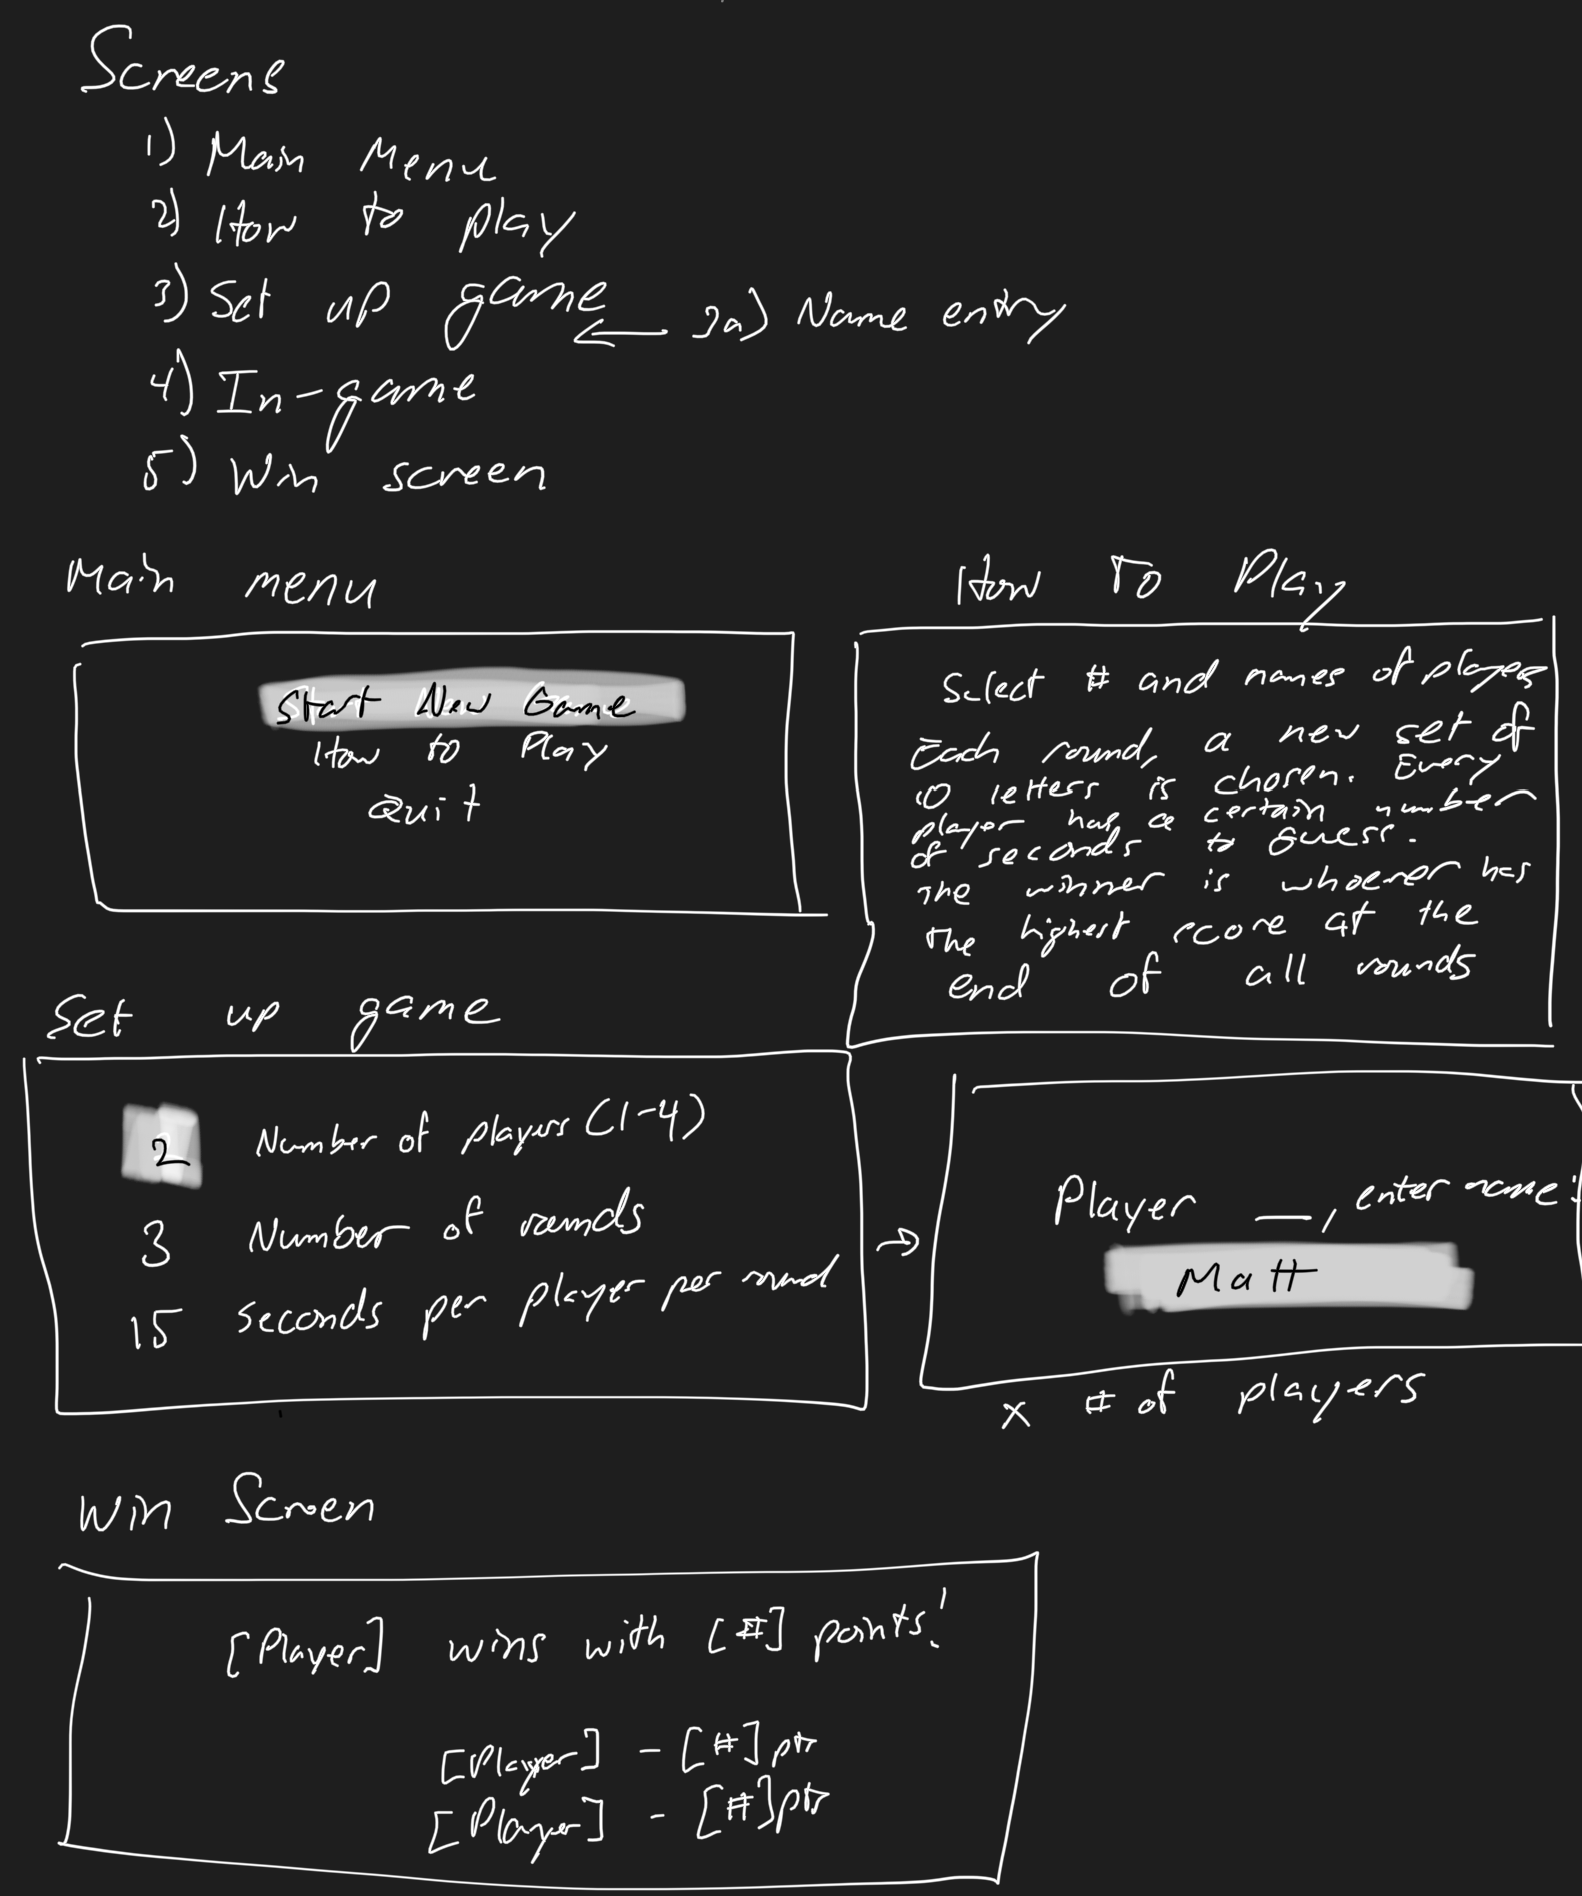 Screens
1) Main Menu
2) How to play
3) Set up game ← 3a) Name entry
4) In-game
5) Win screen
Main menu
Start New Game
How to Play
Quit
How To Play
Select # and names of players
Each round, a new set of
10 letters is chosen. Every
player has a certain number
of seconds to guess.
The winner is whoever has
the highest score at the
end of all rounds
Set up game
2 Number of players (1-4)
3 Number of rounds
15 seconds per player per round
→
Player __, enter name:
Matt
x # of players
Win Screen
[Player] wins with [#] points!
[Player] - [#] pts
[Player] - [#] pts